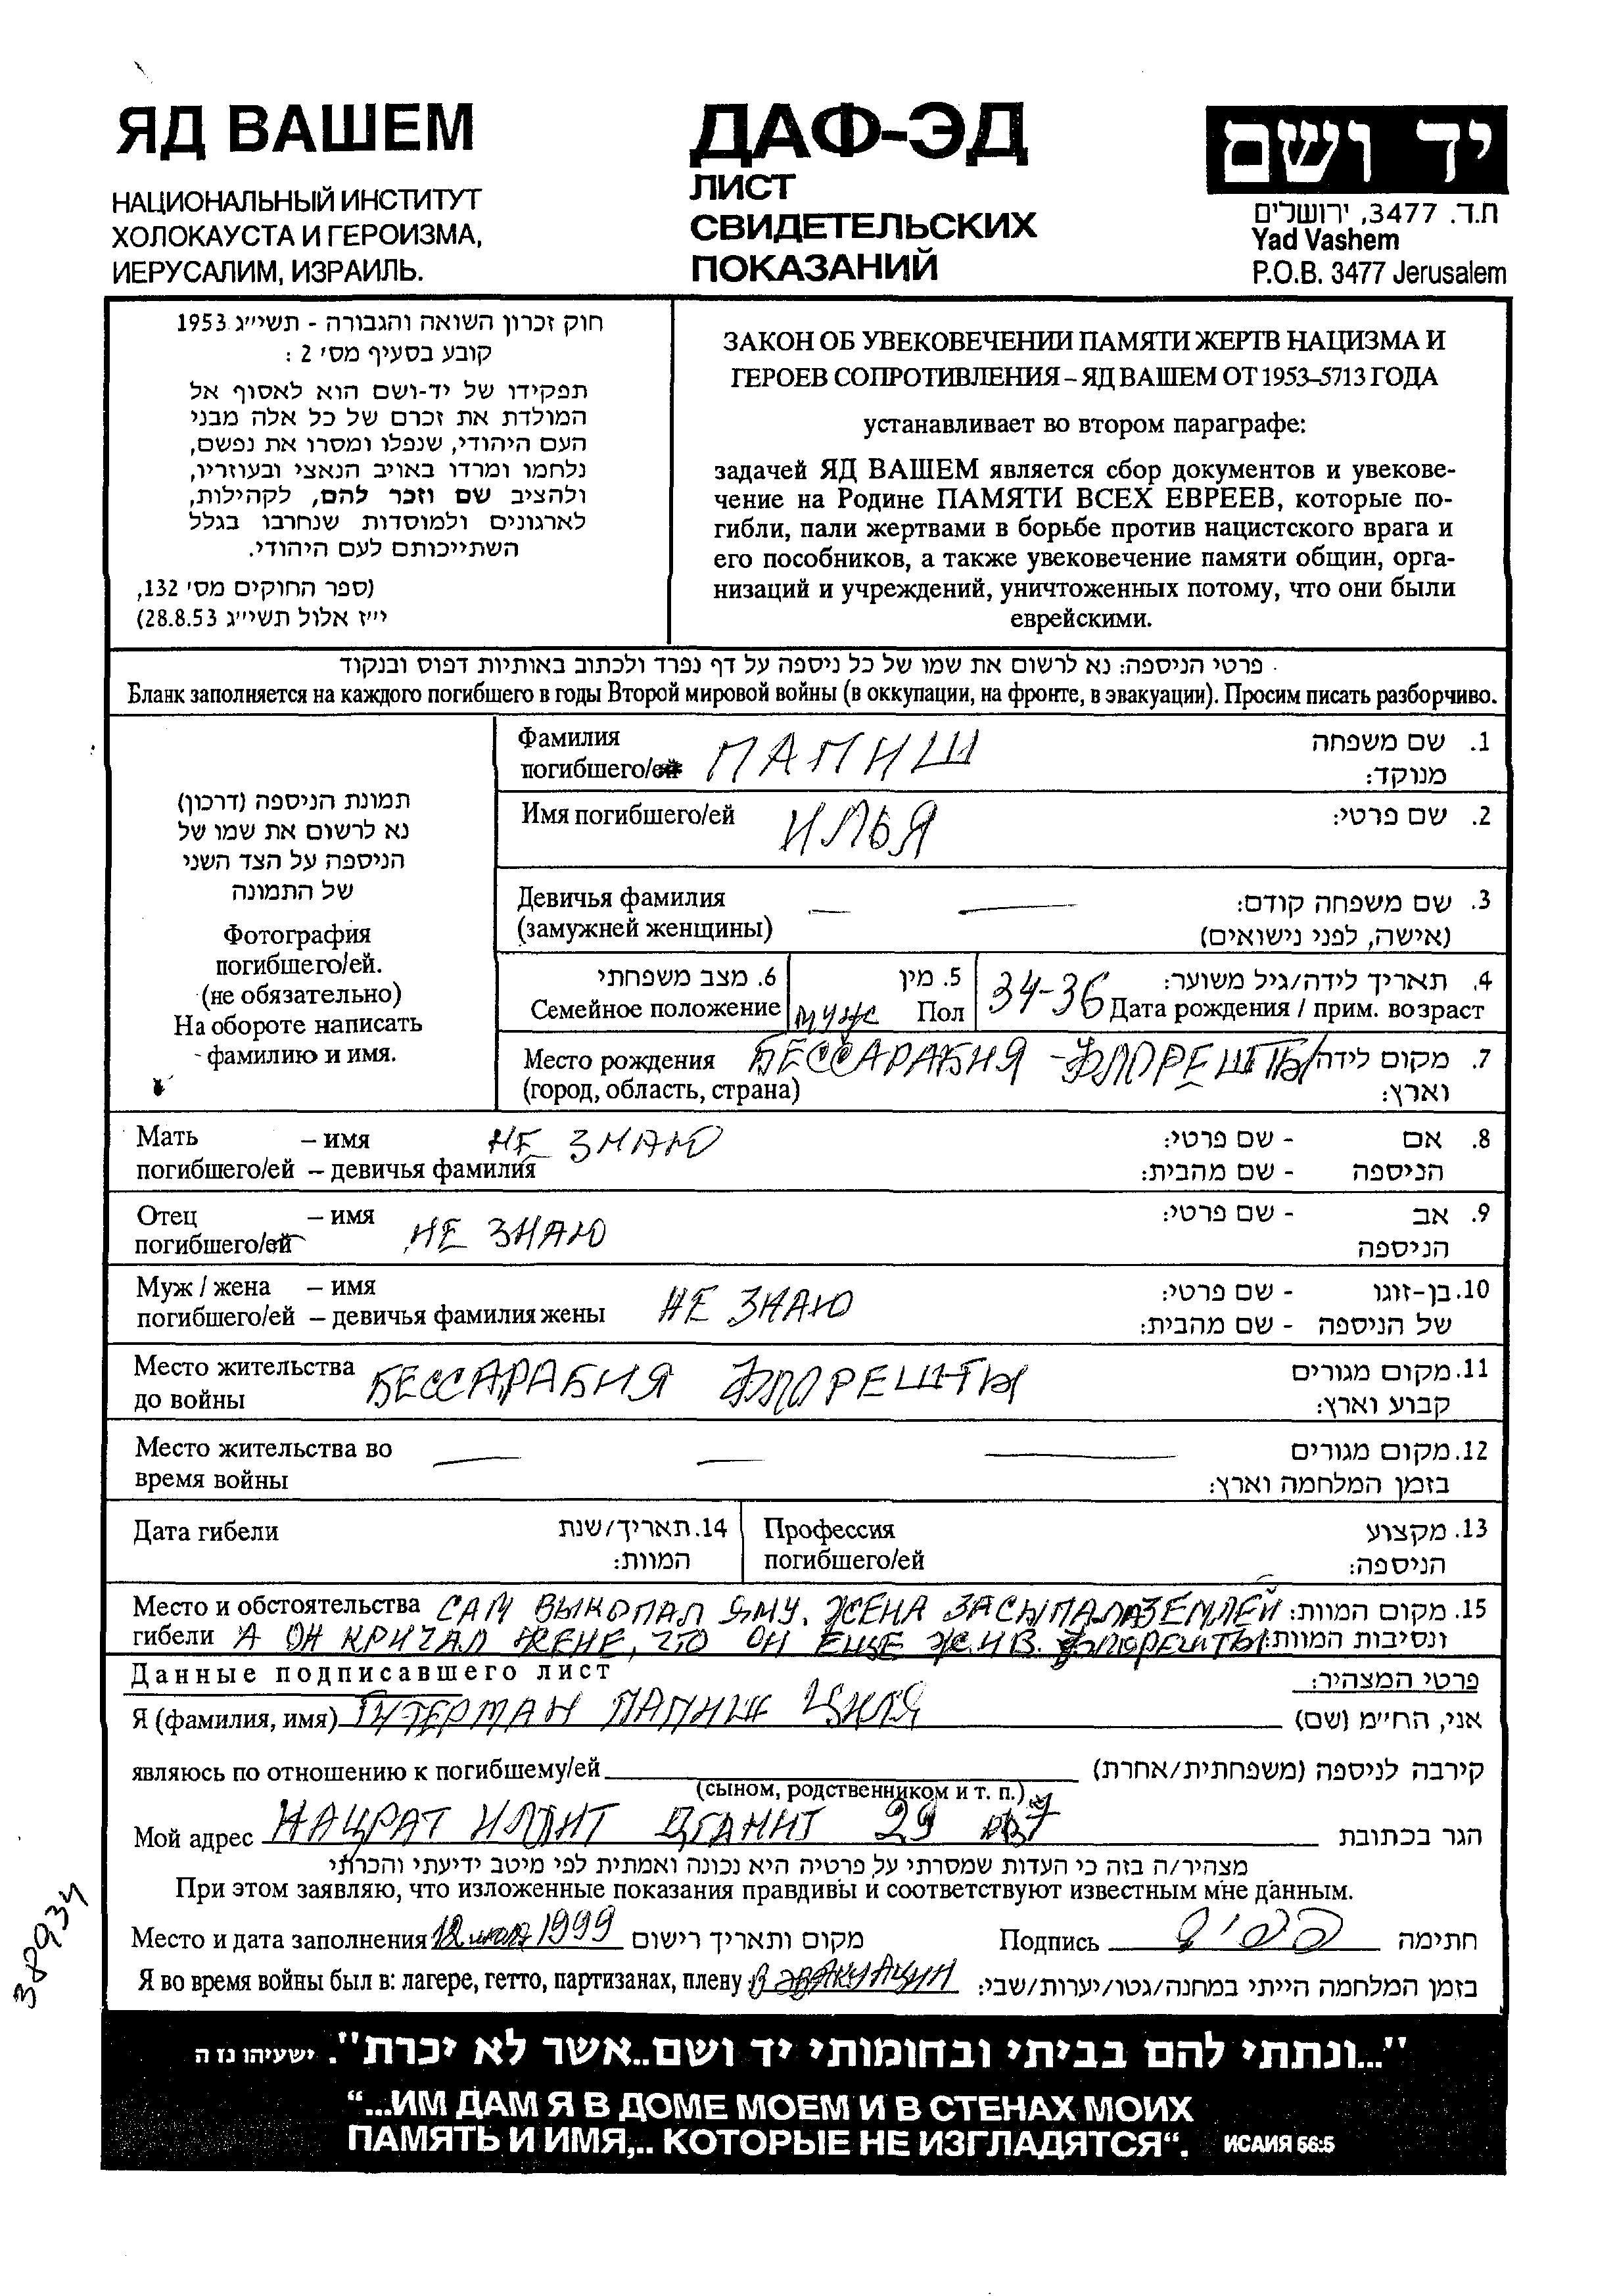 ЯД ВАШЕМ
НАЦИОНАЛЬНЫЙ ИНСТИТУТ
ХОЛОКАУСТА И ГЕРОИЗМА,
ИЕРУСАЛИМ, ИЗРАИЛЬ.
ДАФ-ЭД
ЛИСТ
СВИДЕТЕЛЬСКИХ
ПОКАЗАНИЙ
יד ושם
ת.ד. 3477, ירושלים
Yad Vashem
P.O.B. 3477 Jerusalem
חוק זכרון השואה והגבורה - תשי״ג 1953
קובע בסעיף מס׳ 2 :
תפקידו של יד-ושם הוא לאסוף אל
המולדת את זכרם של כל אלה מבני
העם היהודי, שנפלו ומסרו את נפשם,
נלחמו ומרדו באויב הנאצי ובעוזריו,
ולהציב שם וזכר להם, לקהילות,
לארגונים ולמוסדות שנחרבו בגלל
השתייכותם לעם היהודי.
(ספר החוקים מס׳ 132,
י״ז אלול תשי״ג 28.8.53)
ЗАКОН ОБ УВЕКОВЕЧЕНИИ ПАМЯТИ ЖЕРТВ НАЦИЗМА И
ГЕРОЕВ СОПРОТИВЛЕНИЯ – ЯД ВАШЕМ ОТ 1953–5713 ГОДА
устанавливает во втором параграфе:
задачей ЯД ВАШЕМ является сбор документов и увекове-
чение на Родине ПАМЯТИ ВСЕХ ЕВРЕЕВ, которые по-
гибли, пали жертвами в борьбе против нацистского врага и
его пособников, а также увековечение памяти общин, орга-
низаций и учреждений, уничтоженных потому, что они были
еврейскими.
פרטי הניספה: נא לרשום את שמו של כל ניספה על דף נפרד ולכתוב באותיות דפוס ובנקוד
Бланк заполняется на каждого погибшего в годы Второй мировой войны (в оккупации, на фронте, в эвакуации). Просим писать разборчиво.
תמונת הניספה (דרכון)
נא לרשום את שמו של
הניספה על הצד השני
של התמונה
Фотография
погибшего/ей.
(не обязательно)
На обороте написать
фамилию и имя.
Фамилия ПАПИШ 1. שם משפחה
погибшего/ей מנוקד:
Имя погибшего/ей ИЛЬЯ 2. שם פרטי:
Девичья фамилия — — 3. שם משפחה קודם:
(замужней женщины) (אישה, לפני נישואים)
6. מצב משפחתי 5. מין 34-36 4. תאריך לידה/גיל משוער:
Семейное положение муж Пол Дата рождения / прим. возраст
Место рождения БЕССАРАБИЯ - ФЛОРЕШТЫ 7. מקום לידה
(город, область, страна) וארץ:
Мать – имя НЕ ЗНАЮ 8. אם - שם פרטי:
погибшего/ей – девичья фамилия הניספה - שם מהבית:
Отец – имя НЕ ЗНАЮ 9. אב - שם פרטי:
погибшего/ей הניספה
Муж / жена – имя НЕ ЗНАЮ 10. בן-זוגו - שם פרטי:
погибшего/ей – девичья фамилия жены של הניספה - שם מהבית:
Место жительства БЕССАРАБИЯ ФЛОРЕШТЫ 11. מקום מגורים
до войны קבוע וארץ:
Место жительства во — — — 12. מקום מגורים
время войны בזמן המלחמה וארץ:
Дата гибели 14. תאריך/שנת Профессия 13. מקצוע
המוות: погибшего/ей הניספה:
Место и обстоятельства САМ ВЫКОПАЛ ЯМУ. ЖЕНА ЗАСЫПАЛА ЗЕМЛЕЙ 15. מקום המוות:
гибели А ОН КРИЧАЛ ЖЕНЕ, ЧТО ОН ЕЩЕ ЖИВ. ФЛОРЕШТЫ ונסיבות המוות:
Данные подписавшего лист פרטי המצהיר:
Я (фамилия, имя) ГУТЕРМАН ПАПИШ ЦИЛЯ אני, החי״מ (שם)
являюсь по отношению к погибшему/ей קירבה לניספה (משפחתית/אחרת)
(сыном, родственником и т. п.)
Мой адрес НАЦРАТ ИЛИТ 29 הגר בכתובת
מצהיר/ה בזה כי העדות שמסרתי על פרטיה היא נכונה ואמתית לפי מיטב ידיעתי והכרתי
При этом заявляю, что изложенные показания правдивы и соответствуют известным мне данным.
Место и дата заполнения 1999 מקום ותאריך רישום Подпись חתימה
Я во время войны был в: лагере, гетто, партизанах, плену В ЭВАКУАЦИИ בזמן המלחמה הייתי במחנה/גטו/יערות/שבי:
"...ונתתי להם בביתי ובחומותי יד ושם..אשר לא יכרת". ישעיהו נז ה
“...ИМ ДАМ Я В ДОМЕ МОЕМ И В СТЕНАХ МОИХ
ПАМЯТЬ И ИМЯ,.. КОТОРЫЕ НЕ ИЗГЛАДЯТСЯ“. ИСАИЯ 56:5